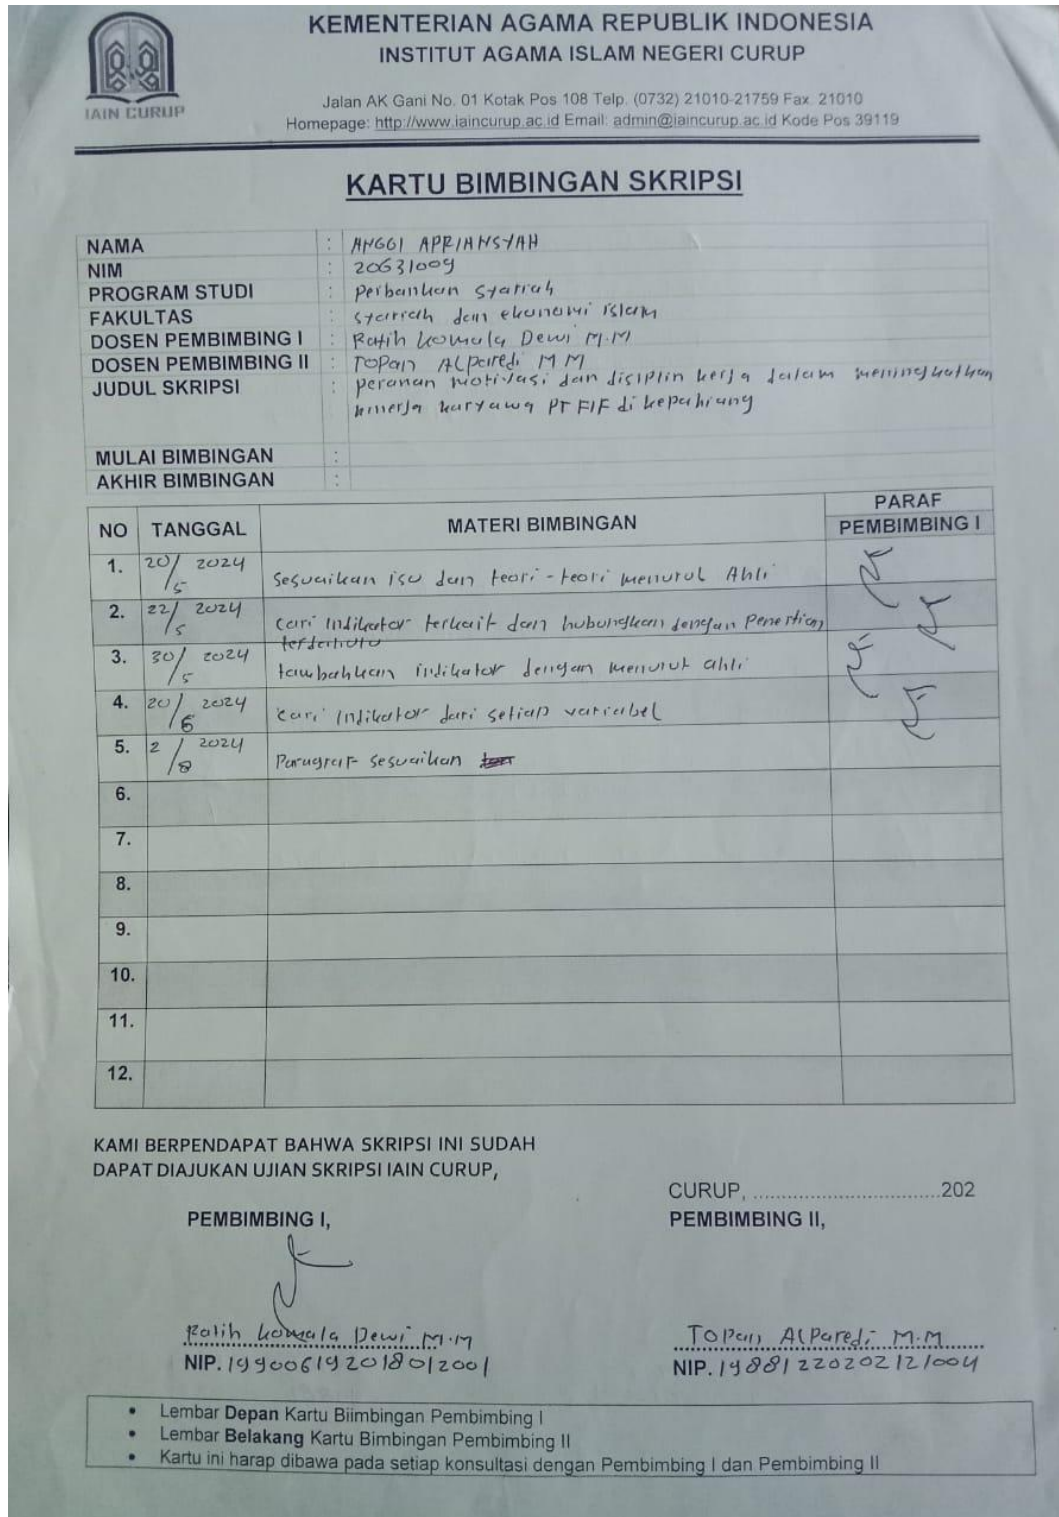 KEMENTERIAN AGAMA REPUBLIK INDONESIA
INSTITUT AGAMA ISLAM NEGERI CURUP
IAIN CURUP
Jalan AK Gani No. 01 Kotak Pos 108 Telp. (0732) 21010-21759 Fax. 21010
Homepage: http://www.iaincurup.ac.id Email: admin@iaincurup.ac.id Kode Pos 39119
KARTU BIMBINGAN SKRIPSI
NAMA : ANGGI APRIANSYAH
NIM : 20631009
PROGRAM STUDI : Perbankan syariah
FAKULTAS : syariah dan ekonomi islam
DOSEN PEMBIMBING I : Ratih komala Dewi M.M
DOSEN PEMBIMBING II : TOPan Alparedi M M
JUDUL SKRIPSI : peranan motivasi dan disiplin kerja dalam meningkatkan
kinerja karyawa PT FIF di kepahiang
MULAI BIMBINGAN :
AKHIR BIMBINGAN :
NO TANGGAL MATERI BIMBINGAN PARAF
PEMBIMBING I
1. 20/5 2024 Sesuaikan isu dan teori-teori menurut Ahli
2. 22/5 2024 cari Indikator terkait dan hubungkan dengan
terdahulu
3. 30/5 2024 tambahkan indikator dengan menurut ahli
4. 20/6 2024 cari Indikator dari setiap variabel
5. 2/8 2024 Paragraf sesuaikan
6.
7.
8.
9.
10.
11.
12.
KAMI BERPENDAPAT BAHWA SKRIPSI INI SUDAH
DAPAT DIAJUKAN UJIAN SKRIPSI IAIN CURUP,
CURUP, ................................202
PEMBIMBING I, PEMBIMBING II,
Ratih komala Dewi M.M TOPan AlParedi M.M
NIP. 199006192018012001 NIP. 19881220202121004
• Lembar Depan Kartu Biimbingan Pembimbing I
• Lembar Belakang Kartu Bimbingan Pembimbing II
• Kartu ini harap dibawa pada setiap konsultasi dengan Pembimbing I dan Pembimbing II